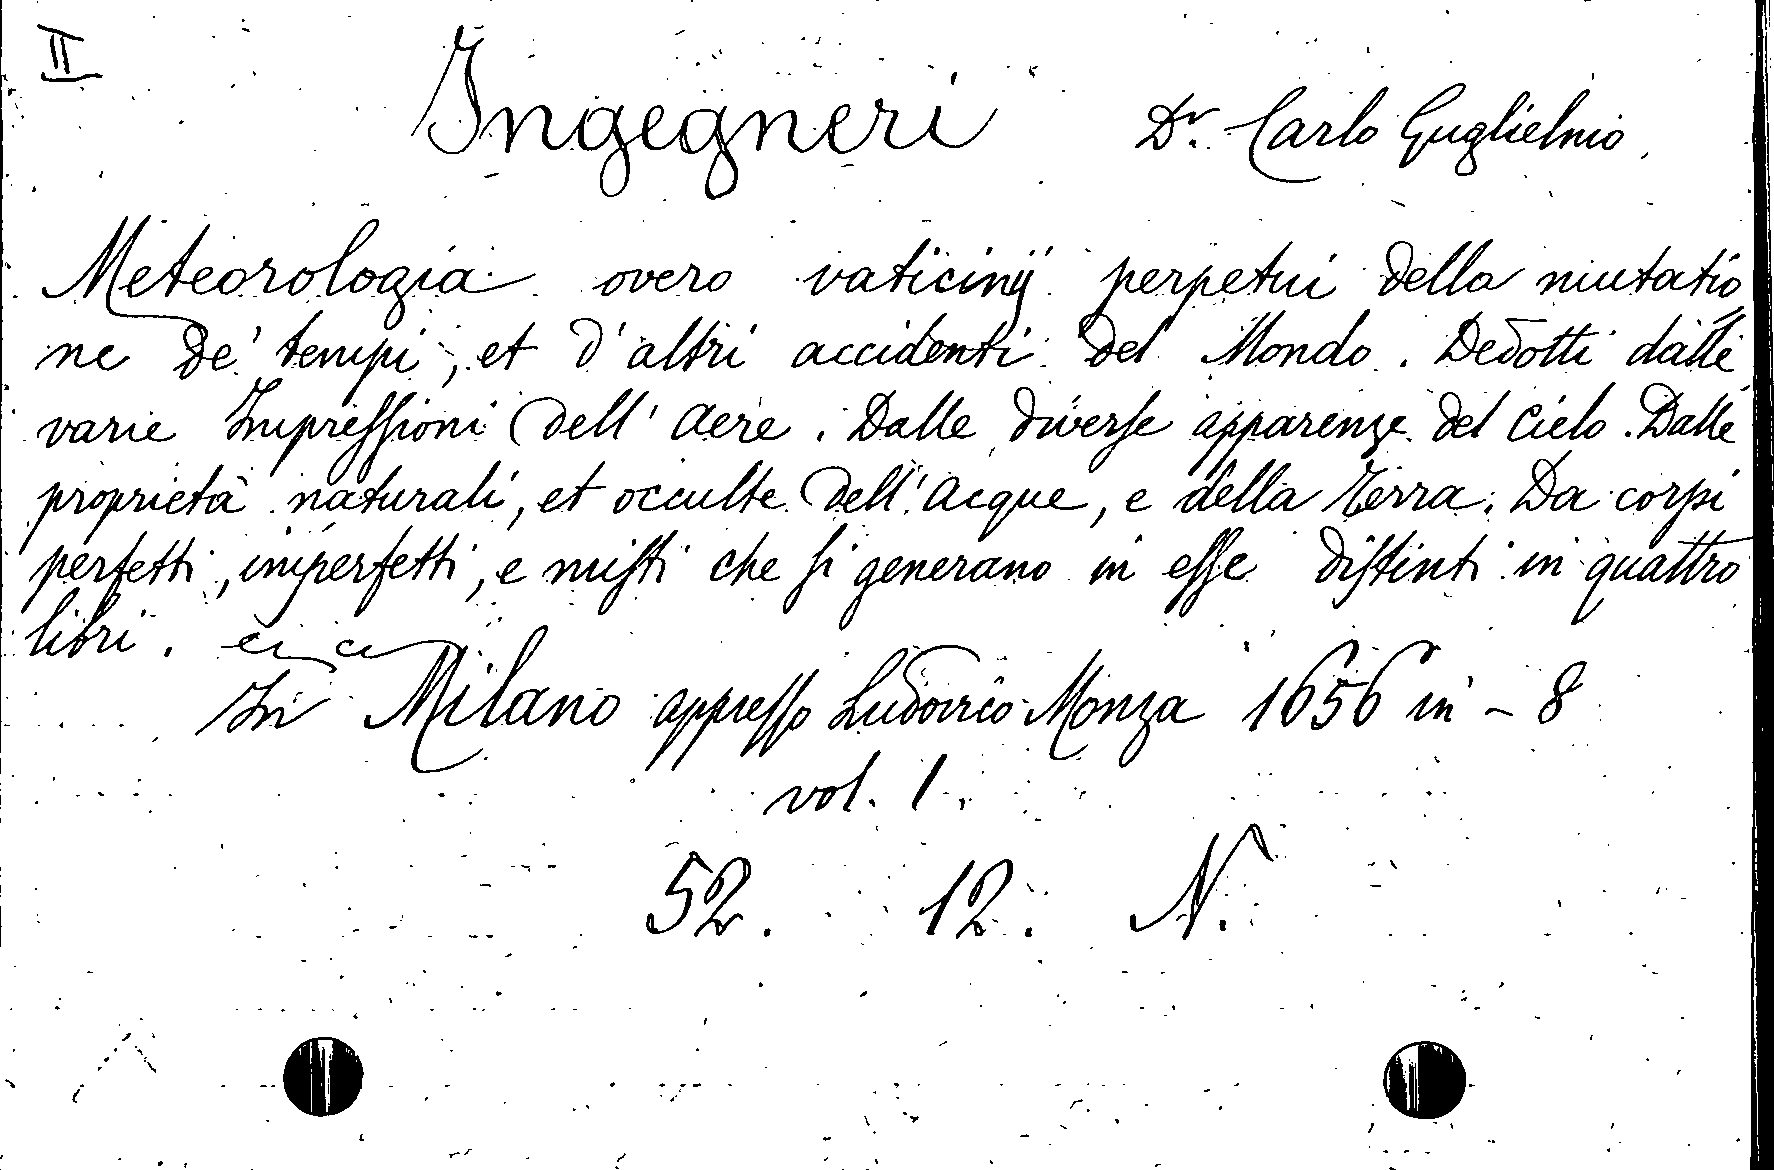 II
Ingegneri Dr. Carlo Guglielmo
Meteorologia overo vaticinij perpetui della mutatio
ne de' tempi, et d'altri accidenti del Mondo. Dedotti dalle
varie Impressioni dell'aere. Dalle diverse apparenze del Cielo. Dalle
proprietà naturali, et occulte dell'Acque, e della Terra. Da corpi
perfetti, imperfetti, e misti che si generano in esse distinti in quattro
libri.
In Milano appresso Ludovico Monza 1656 in - 8
vol. 1.
52. 12. N.